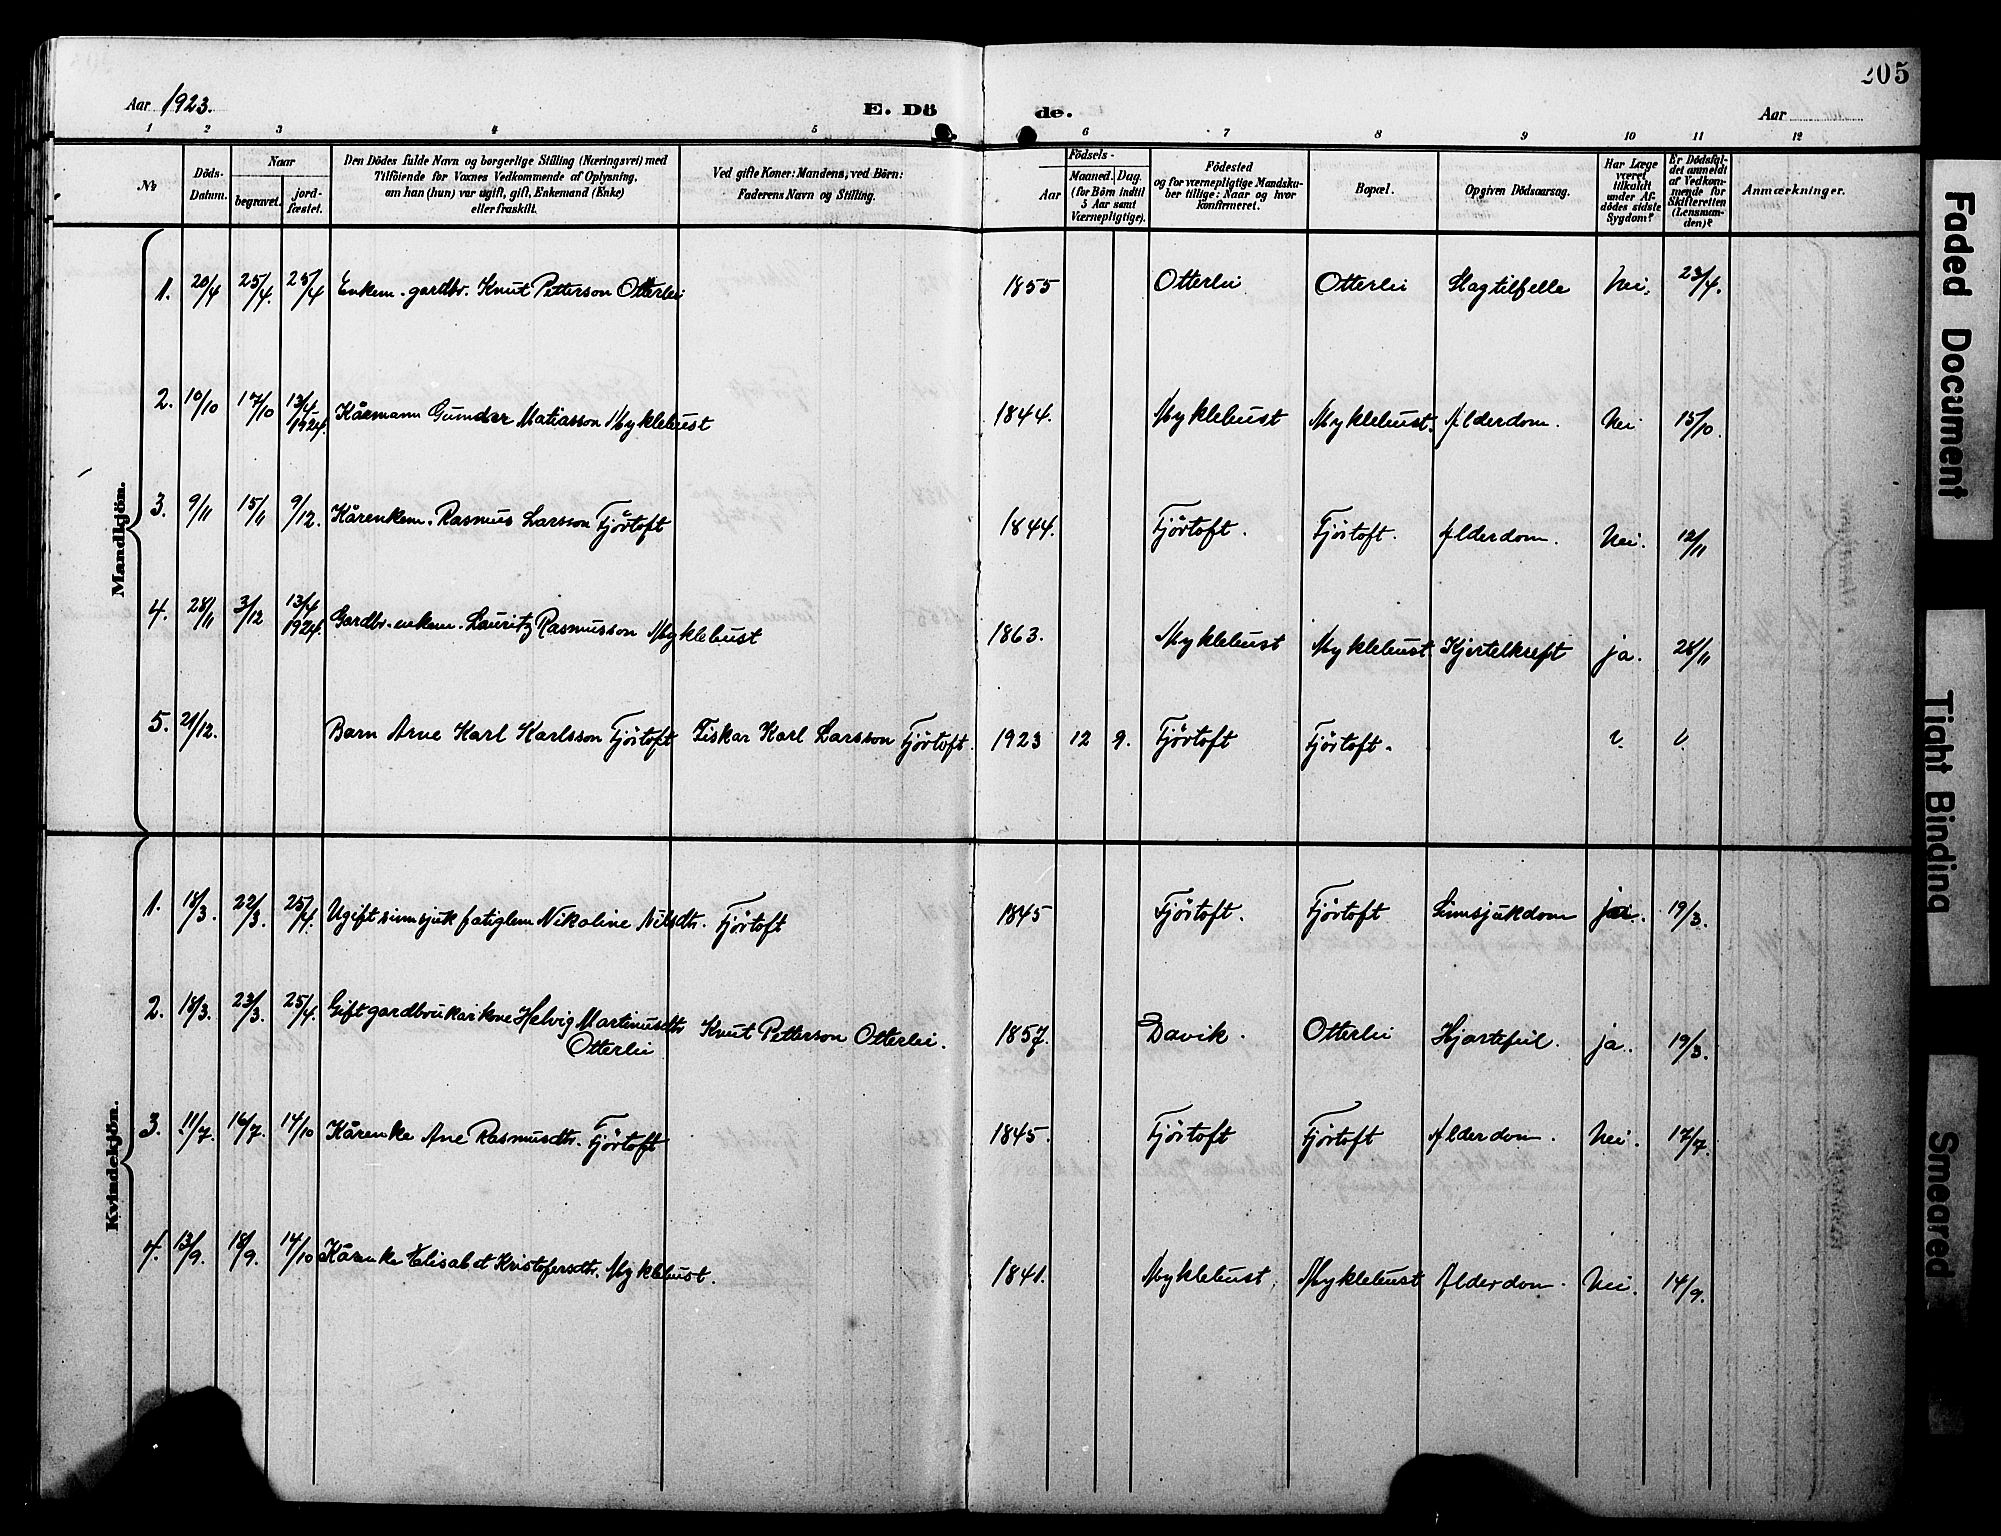 205
Aar 1923. E. Dö de. Aar
1 2 3 4 5 6 7 8 9 10 11 12
№
Döds-Datum.
Naar
begravet.
jord-fæstet.
Den Dödes fulde Navn og borgerlige Stilling (Næringsvei) med
Tilföiende for Voxnes Vedkommende af Oplysning,
om han (hun) var ugift, gift, Enkemand (Enke)
eller fraskilt.
Ved gifte Koner: Mandens, ved Börn:
Faderens Navn og Stilling.
Födsels-
Aar
Maaned. Dag.
(for Börn indtil
5 Aar samt
Værnepligtige).
Födested
og for værnepligtige Mandska-
ber tillige: Naar og hvor
konfirmeret.
Bopæl.
Opgiven Dödsaarsag.
Har Læge
været
tilkaldt
under Af-
dödes sidste
Sygdom?
Er Dödsfal-
det anmeldt
af Vedkom-
mende for
Skifteretten
(Lensman-
den)?
Anmærkninger.
Mandkjön.
1. 20/4 25/4. 25/4 Enkem. gardbr. Knut Petterson Otterlei 1855 Otterlei Otterlei Slagtilfelle Nei. 23/4.
2. 10/10 17/10 13/4 1924. Kårmann Gunder Matiasson Myklebust 1844. Myklebust Myklebust. Alderdom. Nei 15/10.
3. 9/11 15/11 9/12. Kårenkem. Rasmus Larsson Fjörtoft 1844. Fjörtoft. Fjörtoft. Alderdom. Nei. 12/11
4. 28/11 3/12 13/4 1924. Gardbr. enkem. Lauritz Rasmusson Myklebust 1863. Myklebust Myklebust Kjertelkreft ja. 28/11
5. 21/12. Barn Arne Karl Karlsson Fjörtoft Fiskar Karl Larsson Fjörtoft. 1923 12 9. Fjörtoft Fjörtoft.
Kvindekjön.
1. 18/3. 22/3. 25/4. Ugift sinnsjuk fatiglem Nikoline Nilsdtr. Fjörtoft 1845 Fjörtoft. Fjörtoft Sinnsjukdom ja. 19/3.
2. 18/3. 23/3. 25/4. Gift gardbrukarkone Helvig Martinusdtr Otterlei Knut Petterson Otterlei. 1857. Davik. Otterlei Hjartefeil. ja. 19/3.
3. 11/7. 16/7. 14/10 Kårenke Ane Rasmusdtr. Fjörtoft 1845. Fjörtoft Fjörtoft Alderdom. Nei. 17/7.
4. 13/9. 18/9. 14/10 Kårenke Elisabet Kristofersdtr. Myklebust. 1841. Myklebust, Myklebust Alderdom. Nei. 14/9.
Faded Document
Tight Binding
Smeared